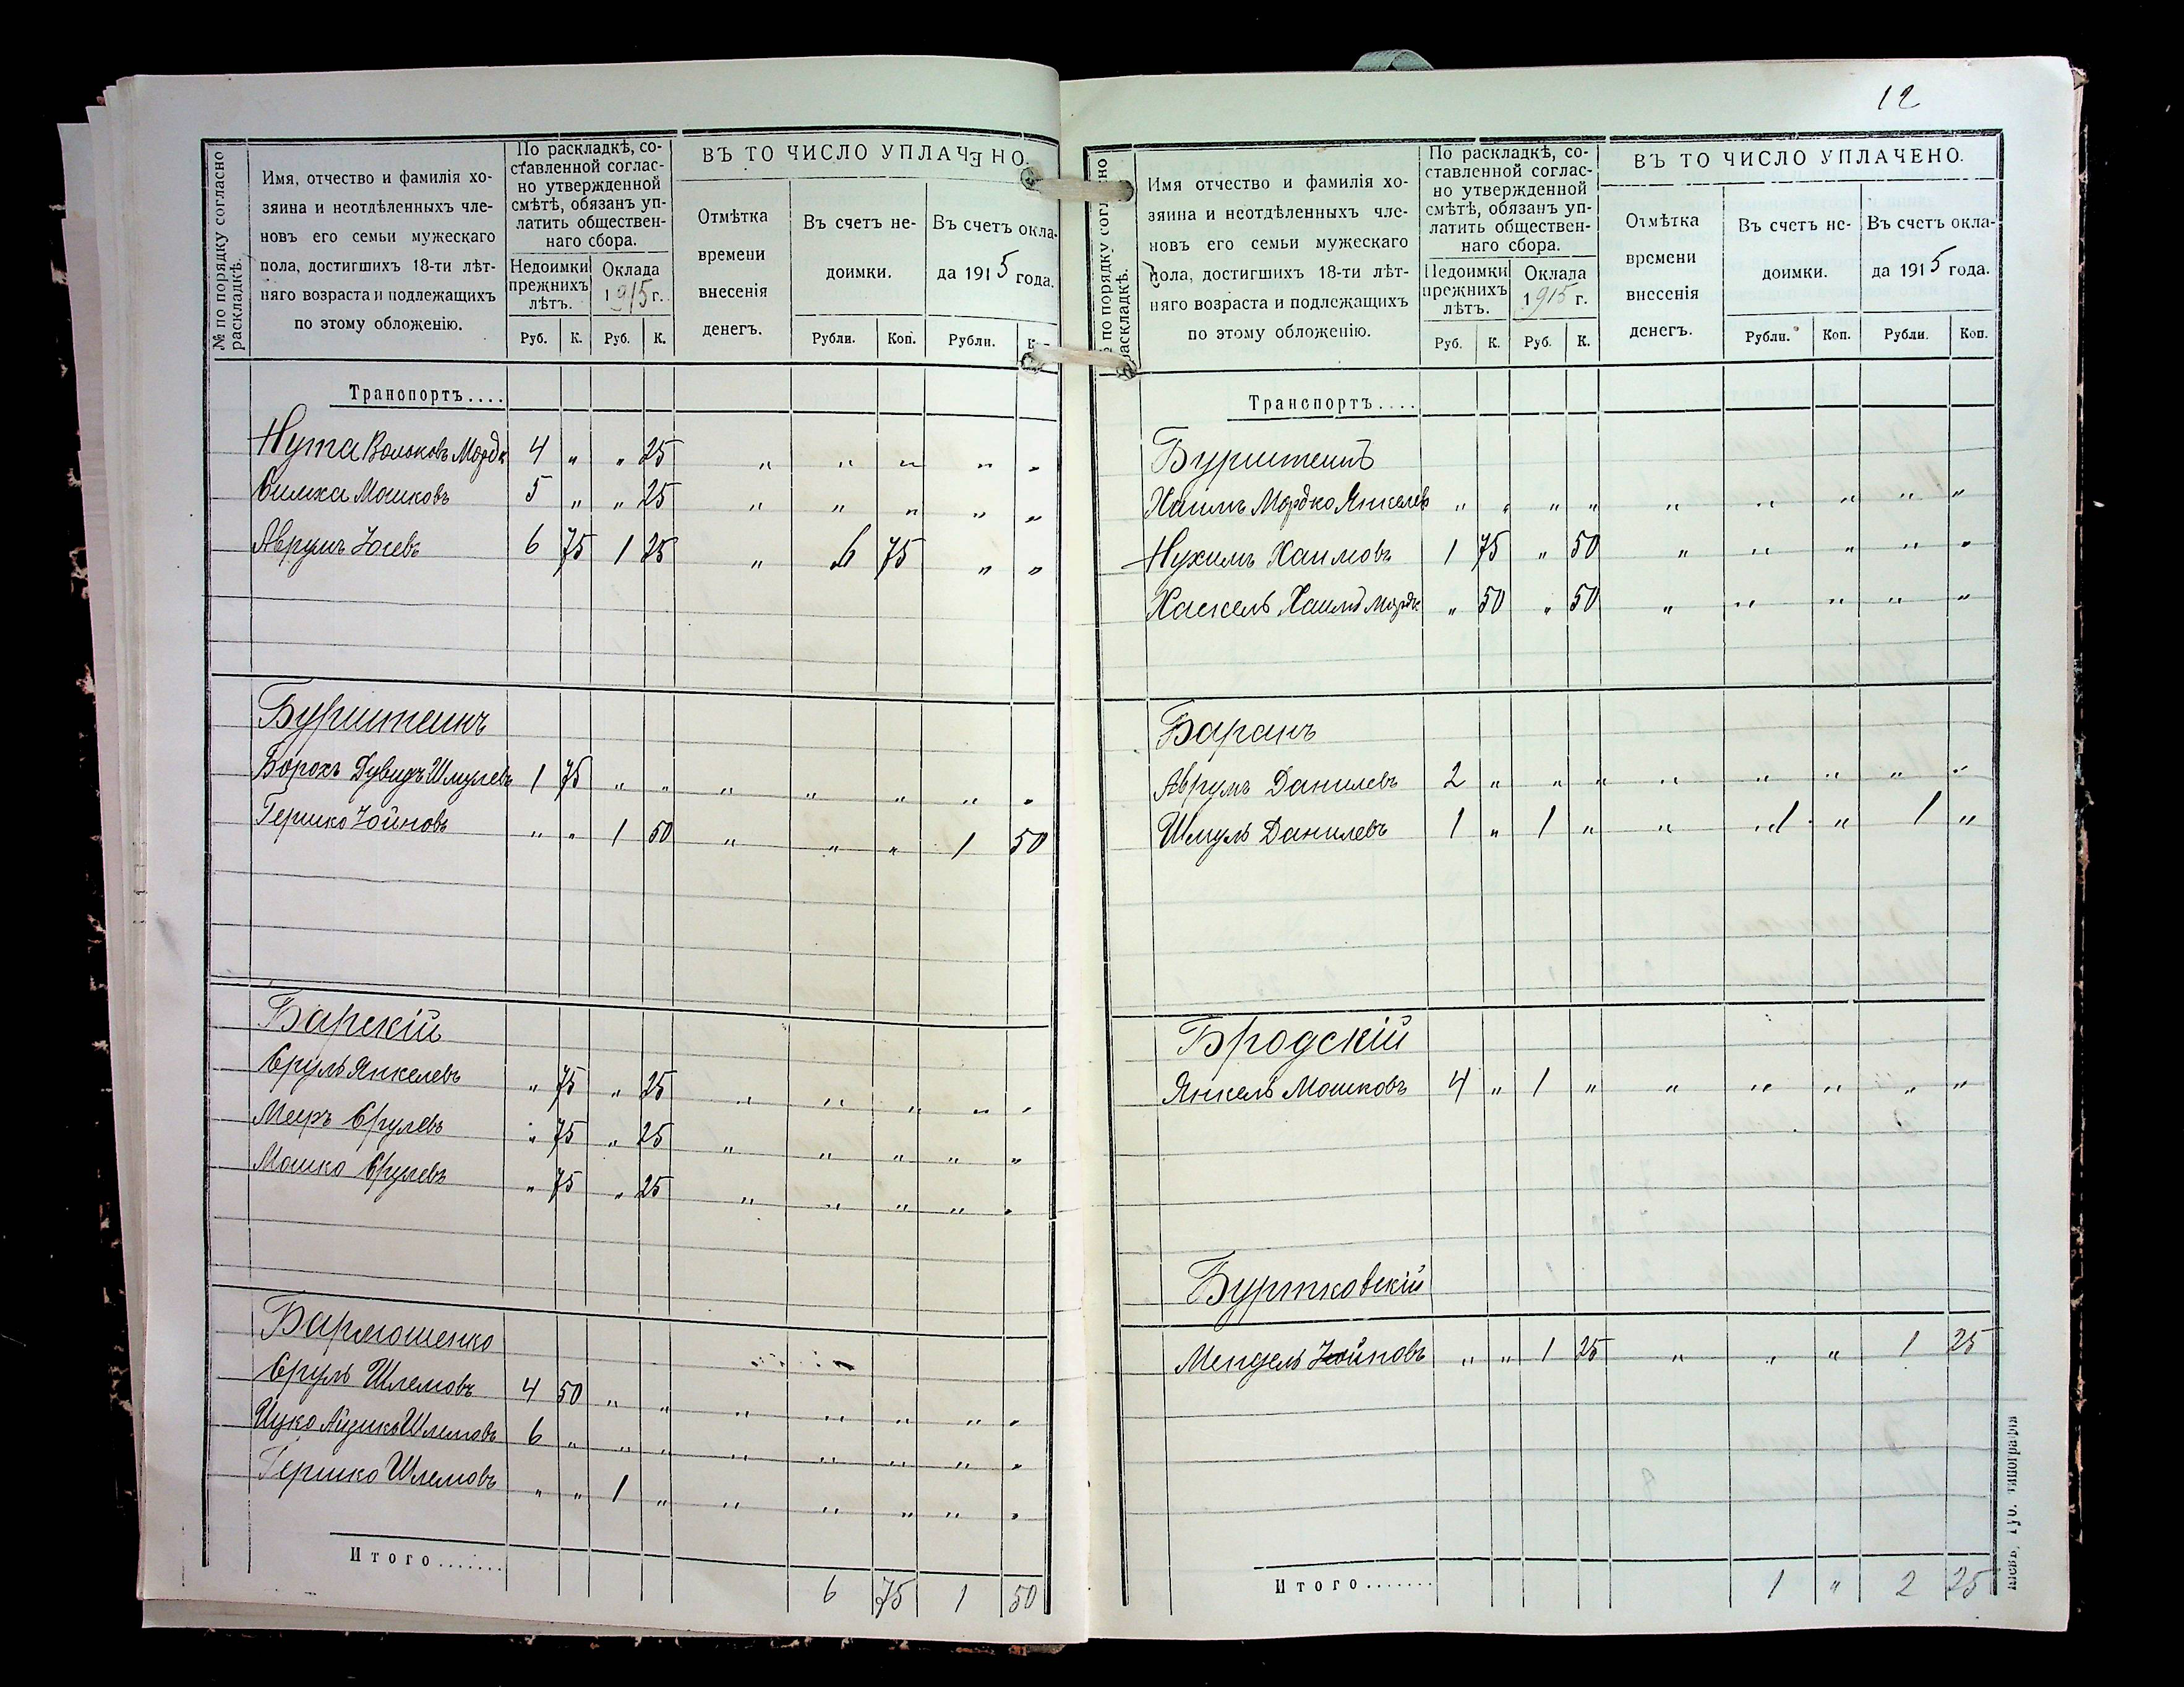 № по порядку согласно раскладкѣ.
Имя, отчество и фамилія хо-
зяина и неотдѣленныхъ чле-
новъ его семьи мужескаго
пола, достигшихъ 18-ти лѣт-
няго возраста и подлежащихъ
по этому обложенію.
По раскладкѣ, со-
ставленной соглас-
но утвержденной
смѣтѣ, обязанъ уп-
латить обществен-
наго сбора.
Недоимки прежнихъ лѣтъ.
Оклада 1915 г.
Руб. К. Руб. К.
ВЪ ТО ЧИСЛО УПЛАЧЕНО.
Отмѣтка
времени
внесенія
денегъ.
Въ счетъ не-
доимки.
Въ счетъ окла-
да 1915 года.
Рубли. Коп. Рубли.
Транспортъ....
Нута Волоковъ Мордк 4 " " 25 " " " " "
Симха Мошковъ 5 " " 25 " " " " "
Аврумъ Юсевъ 6 75 1 25 " 6 75 " "
Бурштейнъ
Борохъ Дувидъ Шмулевъ 1 75 " " " " " " "
Гершко Іойновъ " " 1 50 " " " 1 50
Барскій
Сруль Янкелевъ " 75 " 25 " " " " "
Мееръ Срулевъ " 75 " 25 " " " " "
Мошко Срулевъ " 75 " 25 " " " " "
Бармошенко
Сруль Шлемовъ 4 50 " " " " " " "
Ицко Айзикъ Шлемовъ 6 " " " " " " " "
Гершко Шлемовъ " " 1 " " " " " "
Итого....... 6 75 1 50
12
№ по порядку согласно раскладкѣ.
Имя отчество и фамилія хо-
зяина и неотдѣленныхъ чле-
новъ его семьи мужескаго
пола, достигшихъ 18-ти лѣт-
няго возраста и подлежащихъ
по этому обложенію.
По раскладкѣ, со-
ставленной соглас-
но утвержденной
смѣтѣ, обязанъ уп-
латить обществен-
наго сбора.
Недоимки прежнихъ лѣтъ.
Оклада 1915 г.
Руб. К. Руб. К.
ВЪ ТО ЧИСЛО УПЛАЧЕНО.
Отмѣтка
времени
внесенія
денегъ.
Въ счетъ не-
доимки.
Въ счетъ окла-
да 1915 года.
Рубли. Коп. Рубли. Коп.
Транспортъ....
Бурштейнъ
Хаимъ Мордко Янкелев " " " " " " " " "
Нухимъ Хаимовъ 1 75 " 50 " " " " "
Хаскель Хаимъ Мордк " 50 " 50 " " " " "
Баранъ
Аврумъ Данилевъ 2 " " " " " " " "
Шмуль Данилевъ 1 " 1 " " 1 " 1 "
Бродскій
Янкель Мошковъ 4 " 1 " " " " " "
Буртковскій
Мендель Іойновъ " " 1 25 " " " 1 25
Итого....... 1 " 2 25
Кіевъ, Губ. типографія